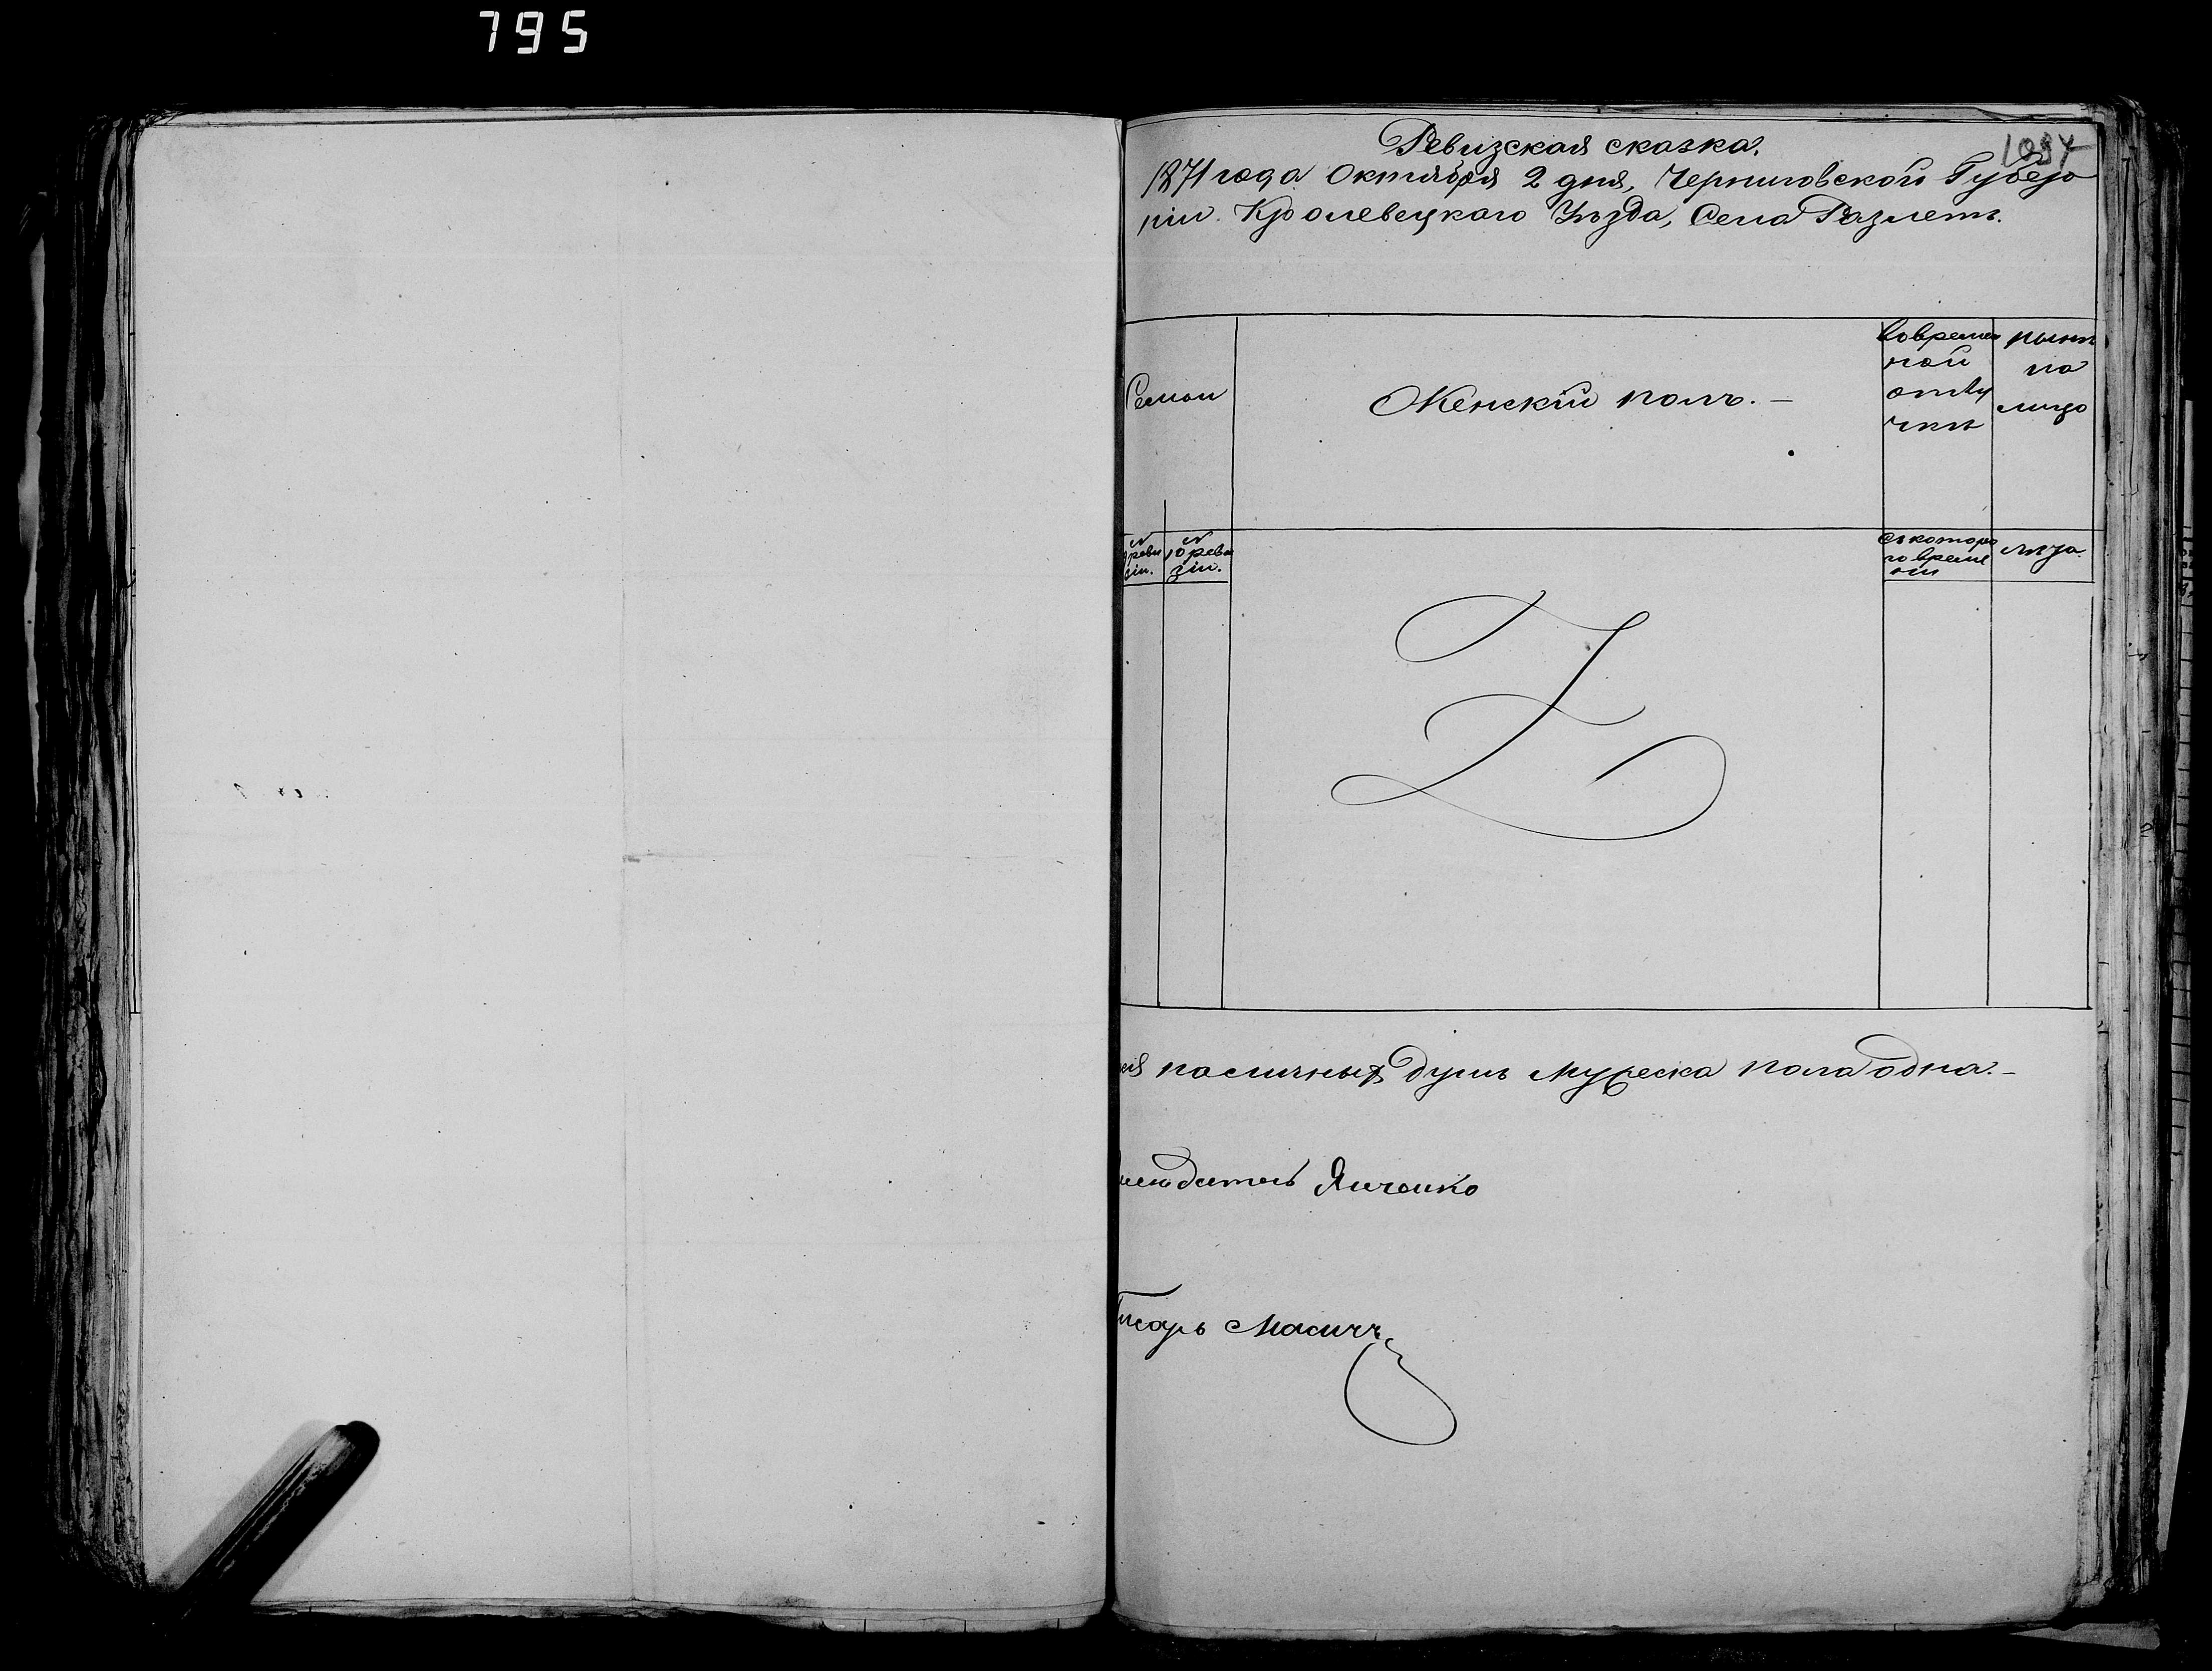 795
1094
Ревизская сказка.
1871 года Октября 2 дня, Черниговской Губер
ніи. Кролевецкаго Уѣзда, Села Разлеты.
Семьи
Женскій полъ. —
Во времен
ной
отлу
чкѣ
нынѣ
на
лицо
№
реви
зіи.
№
10 реви
зіи.
Съ которо
го време
ни
лѣта.
наличныхъ душъ мужеска пола одна. —
Янченко
Писарь Масичъ